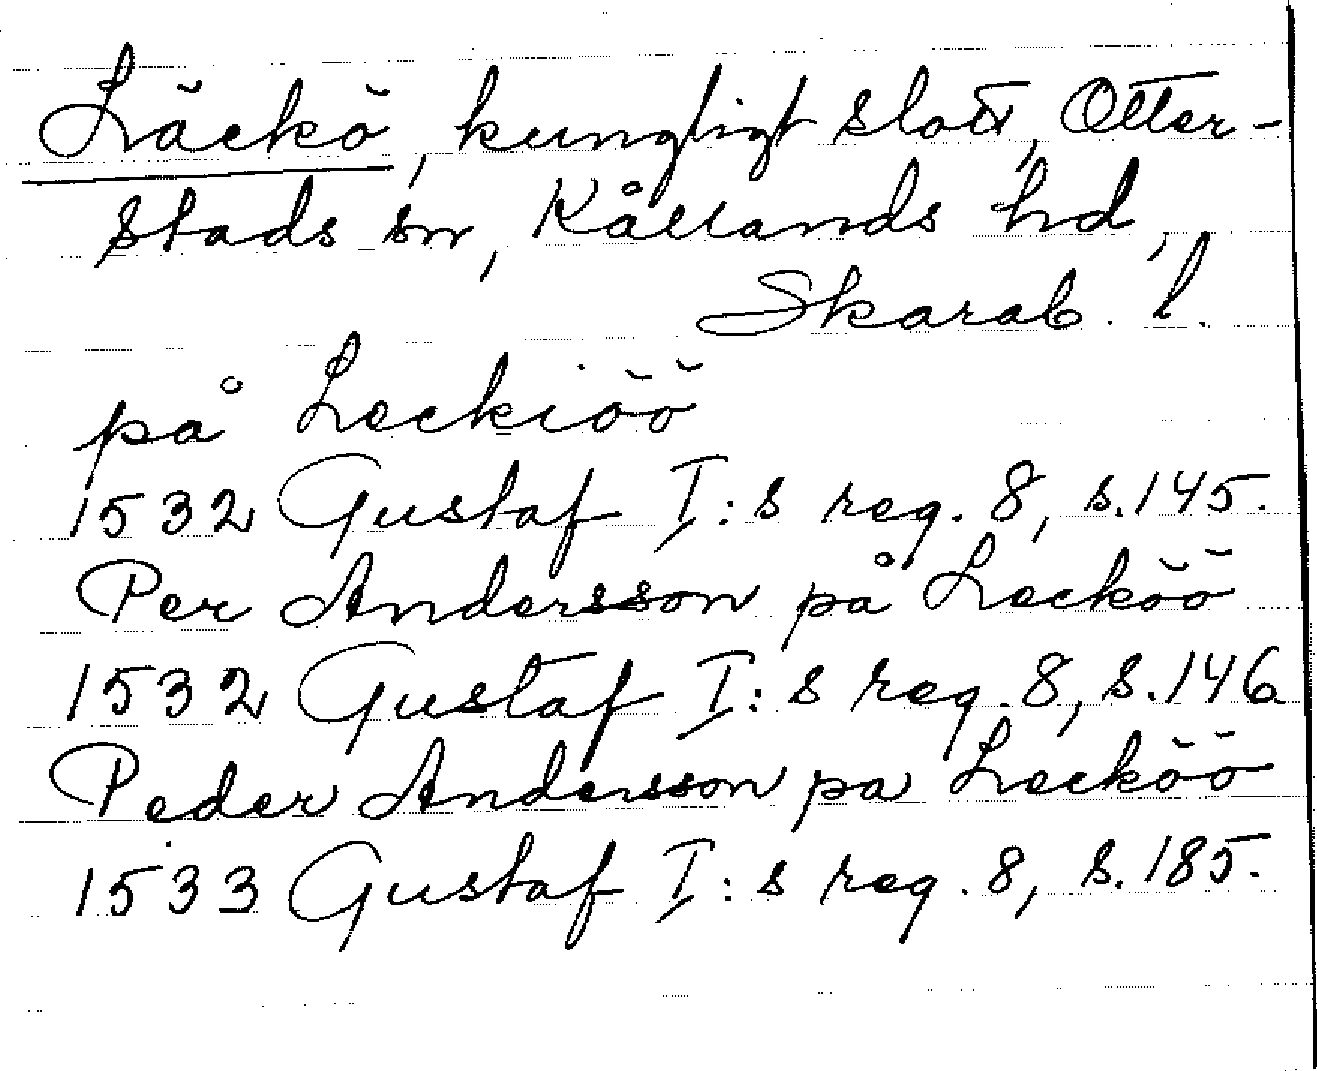 Läckö, kungligt slott, Otter-
stads sn, Kållands hd,
Skarab. l.
på Leckiöö
1532 Gustaf I:s reg. 8, s.145.
Per Andersson på Lecköö
1532 Gustaf I:s reg. 8, s.146
Peder Andersson pa Lecköö
1533 Gustaf I:s reg. 8, s.185.